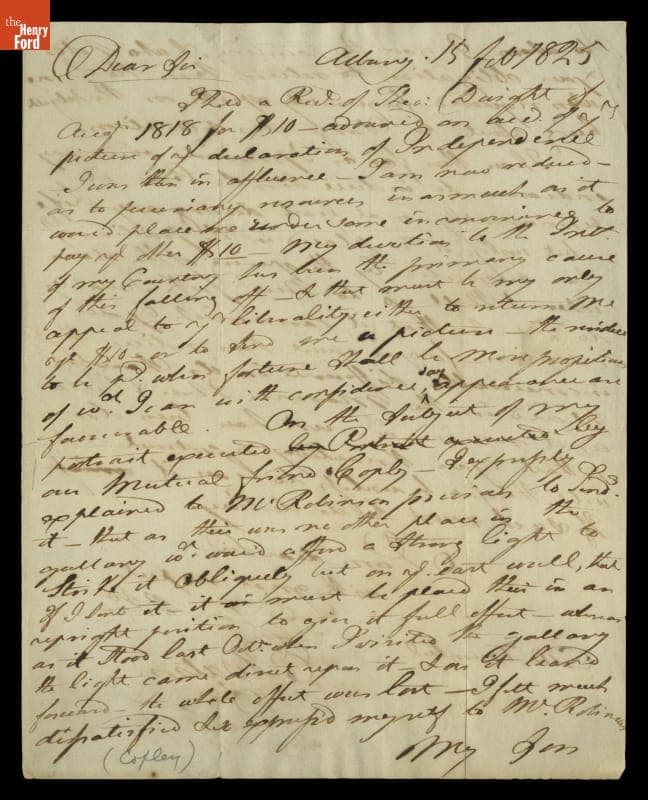 the
Henry
Ford
Albany. 15 Feb 1825
Dear Sir
I hold a Rec.t of Theo: Dwight of
Augt 1818 for $10 – advanced on acct of yr
picture of ye declaration of Independence
I was then in affluence – I am now reduced –
as to pecuniary resources in as much as it
would place me under some inconvenience to
pay ye other $10 – My devotion to the Intt.
of my Country has been the primary cause
of this falling off – & that must be my only
appeal to yr liberality either to return me
ye $10 – or to send me a picture – the residue
to be pd. when fortune shall be more propitious
of wch I can with confidence say appearances are
favourable. On the subject of my
portrait executed by
our Mutual friend Copley – I expressly
explained to Mr Robinson previous to send.g
it – that as there was no other place in the
gallary wch would afford a strong light to
strike it Obliquely but on ye east wall, that
if I sent it – it must be placed there in an
upright position to give it full effect – whereas
as it stood last Octr. when I visited the gallary
the light came direct upon it – & as it leaned
forward – the whole effect was lost – I felt much
dissatisfied & expressed myself to Mr. Robinson
My Son
(Copley)